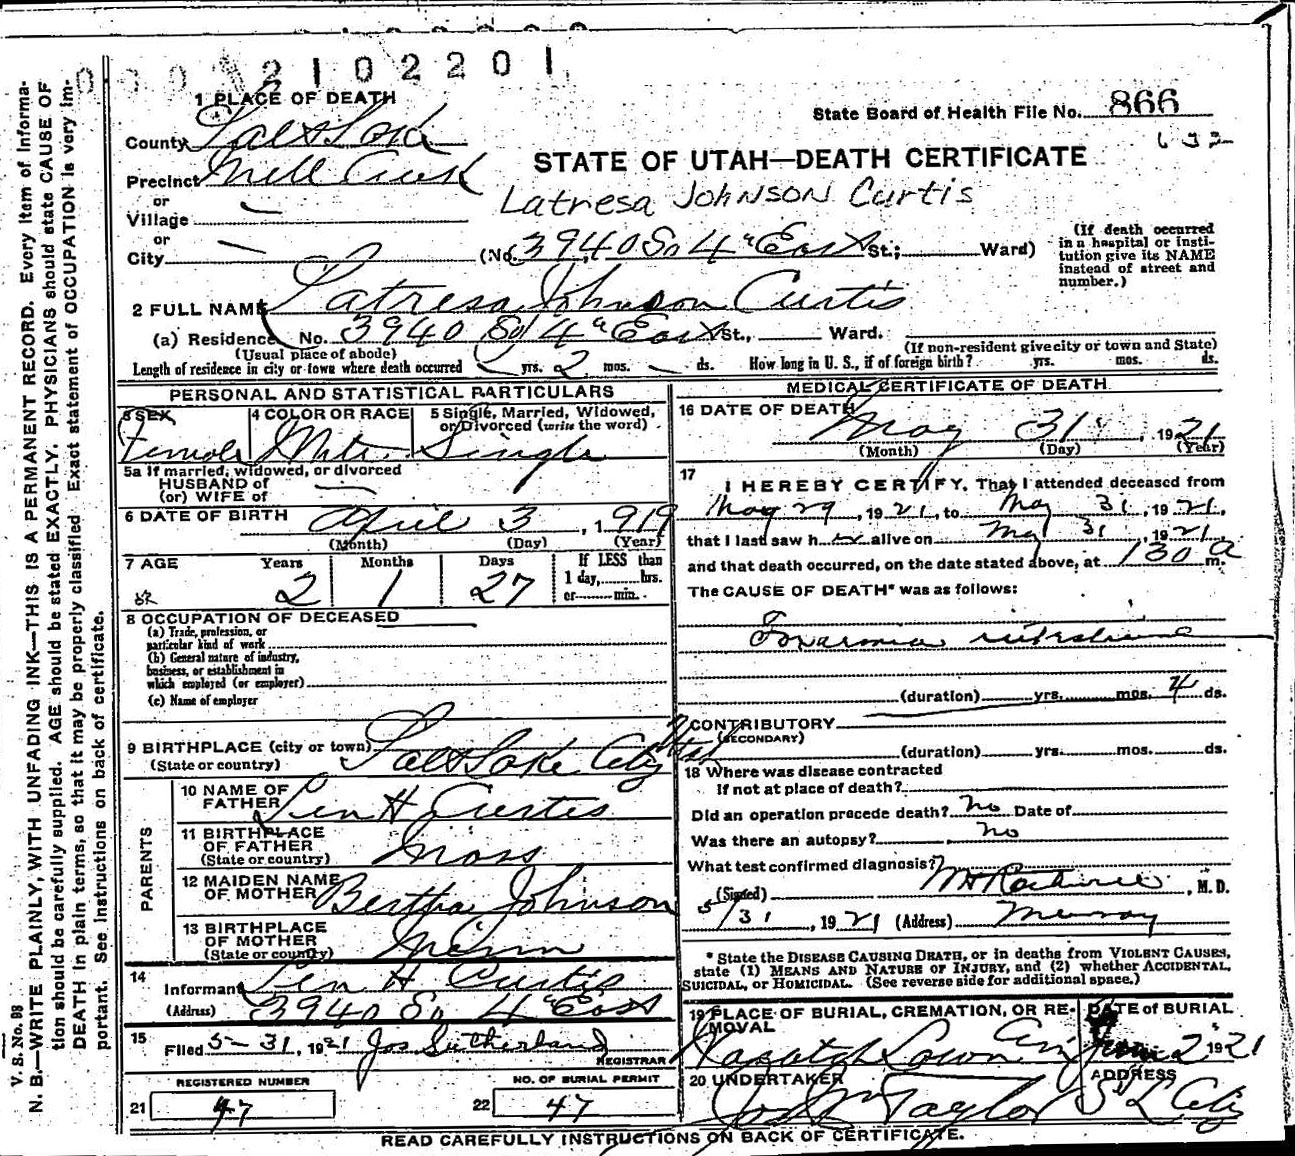 2102201
1 PLACE OF DEATH
State Board of Health File No. 866
County Salt Lake
STATE OF UTAH—DEATH CERTIFICATE
Precinct Mill Creek
Latresa Johnson Curtis
or
Village —
or
City — (No. 3940 So 4th East St.; Ward)
(If death occurred in a hospital or insti-
tution give its NAME
instead of street and
number.)
2 FULL NAME Latresa Johnson Curtis
(a) Residence No. 3940 So 4th East St., Ward.
(Usual place of abode) (If non-resident give city or town and State)
Length of residence in city or town where death occurred yrs. 2 mos. — ds. How long in U. S., if of foreign birth? yrs. mos. ds.
PERSONAL AND STATISTICAL PARTICULARS
3 SEX 4 COLOR OR RACE 5 Single, Married, Widowed,
or Divorced (write the word)
Female White Single
5a If married, widowed, or divorced
HUSBAND of
(or) WIFE of —
6 DATE OF BIRTH April 3, 1919
(Month) (Day) (Year)
7 AGE Years Months Days If LESS than
1 day, hrs.
or min.
2 1 27
8 OCCUPATION OF DECEASED
(a) Trade, profession, or
particular kind of work
(b) General nature of industry,
business, or establishment in
which employed (or employer)
(c) Name of employer
9 BIRTHPLACE (city or town) Salt Lake City Utah
(State or country)
PARENTS
10 NAME OF
FATHER Len H Curtis
11 BIRTHPLACE
OF FATHER Mass
(State or country)
12 MAIDEN NAME
OF MOTHER Bertha Johnson
13 BIRTHPLACE
OF MOTHER Minn
(State or country)
14
Informant Len H. Curtis
(Address) 3940 So 4th East
15
Filed 5-31, 1921 Jos Sutherland
REGISTRAR
REGISTERED NUMBER NO. OF BURIAL PERMIT
21 47 22 47
MEDICAL CERTIFICATE OF DEATH
16 DATE OF DEATH
May 31, 1921
(Month) (Day) (Year)
17
I HEREBY CERTIFY, That I attended deceased from
May 29, 1921, to May 31, 1921,
that I last saw her alive on May 31, 1921
and that death occurred, on the date stated above, at 130 a m.
The CAUSE OF DEATH* was as follows:
(duration) yrs. mos. 4 ds.
CONTRIBUTORY
(SECONDARY)
(duration) yrs. mos. ds.
18 Where was disease contracted
If not at place of death?
Did an operation precede death? No Date of
Was there an autopsy? no
What test confirmed diagnosis?
(Signed) , M. D.
5/31, 1921 (Address) Murray
* State the DISEASE CAUSING DEATH, or in deaths from VIOLENT CAUSES,
state (1) MEANS AND NATURE OF INJURY, and (2) whether ACCIDENTAL,
SUICIDAL, or HOMICIDAL. (See reverse side for additional space.)
19 PLACE OF BURIAL, CREMATION, OR RE-
MOVAL DATE of BURIAL
Wasatch Lawn Cem June 2 1921
20 UNDERTAKER ADDRESS
Jos Wm Taylor S L City
READ CAREFULLY INSTRUCTIONS ON BACK OF CERTIFICATE.
V. S. No. 98
N. B.—WRITE PLAINLY, WITH UNFADING INK—THIS IS A PERMANENT RECORD. Every item of informa-
tion should be carefully supplied. AGE should be stated EXACTLY. PHYSICIANS should state CAUSE OF
DEATH in plain terms, so that it may be properly classified. Exact statement of OCCUPATION is very im-
portant. See instructions on back of certificate.